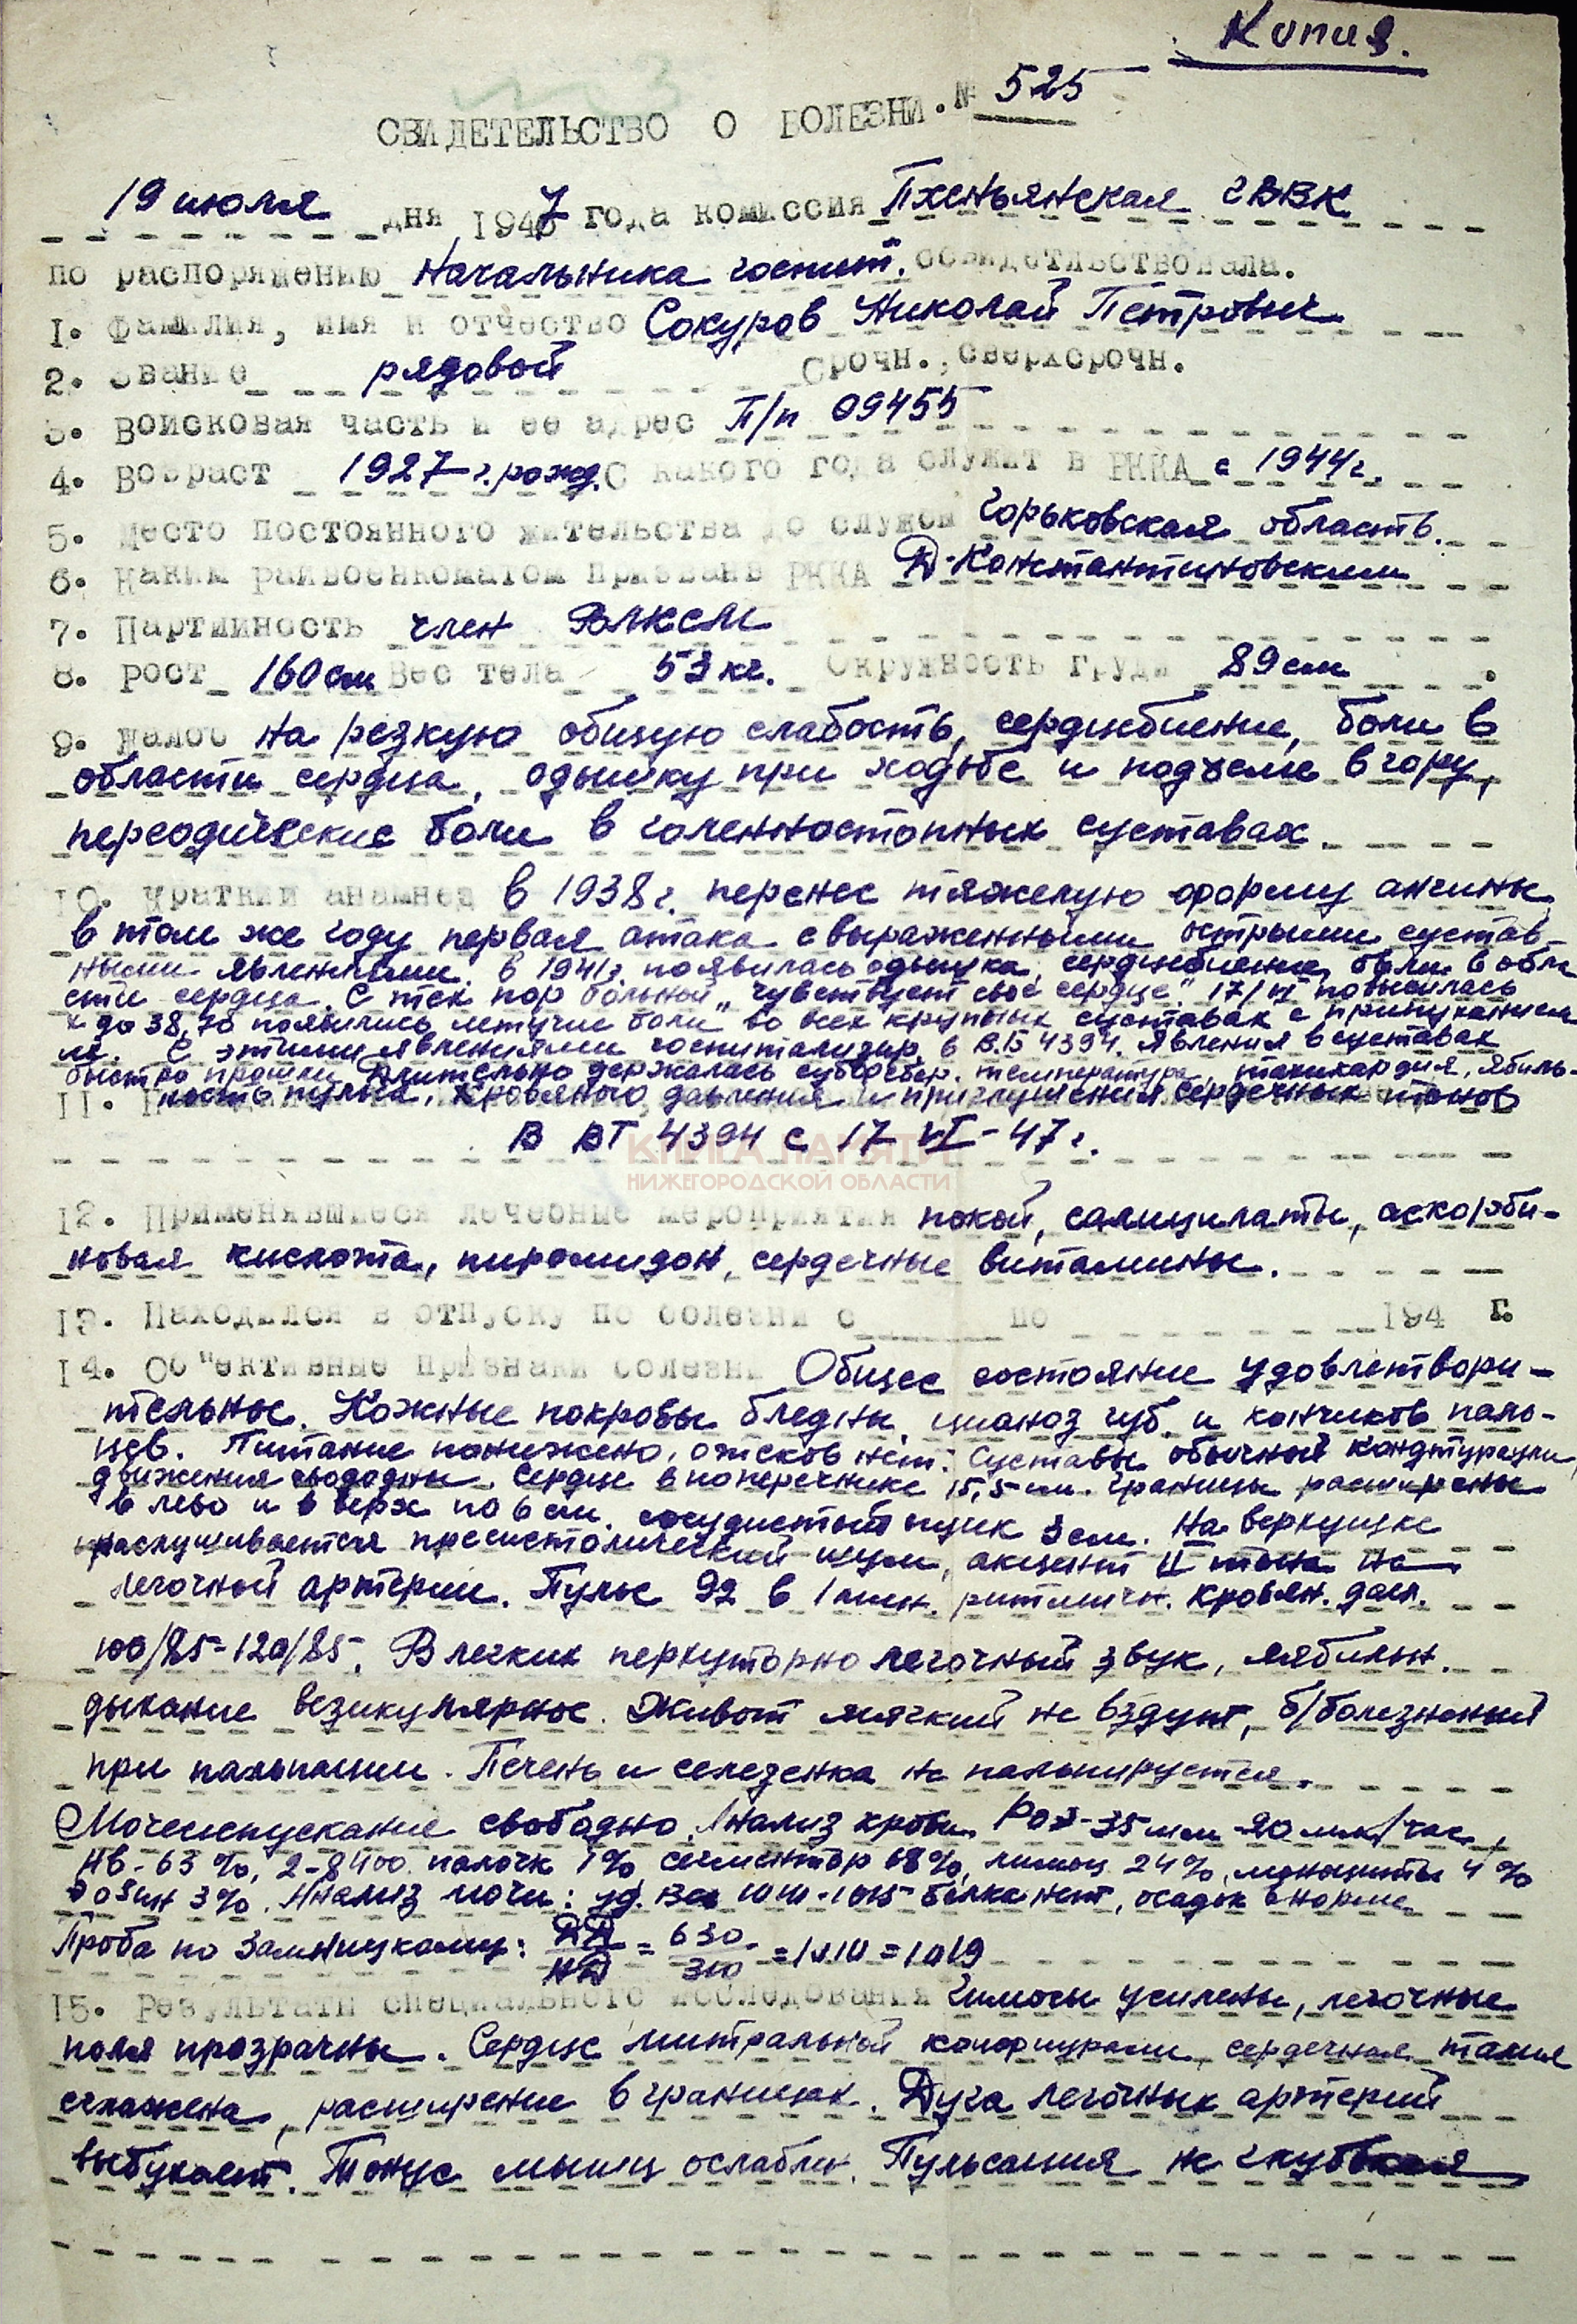 Копия.
СВИДЕТЕЛЬСТВО О БОЛЕЗНИ. № 525
19 июля дня 1947 года комиссия Пхеньянская ГВВК
по распоряжению Начальника госпит. освидетельствовала.
1. Фамилия, имя и отчество Сокуров Николай Петрович
2. Звание рядовой Срочн., сверхсрочн.
3. Войсковая часть и ее адрес П/п 09455
4. Возраст 1927 г. рожд. С какого года служит в РККА с 1944 г.
5. Место постоянного жительства до службы Горьковская область.
6. Каким райвоенкоматом призван в РККА Д-Константиновским
7. Партийность член ВЛКСМ
8. Рост 160 см Вес тела 53 кг. Окружность груди 89 см.
9. Жалоб на резкую общую слабость, сердцебиение, боли в
области сердца, одышку при ходьбе и подъеме в гору,
переодические боли в голенностопных суставах.
10. Краткий анамнез в 1938 г. перенес тяжелую форму ангины,
в том же году первая атака с выраженными острыми сустав-
ными явлениями, в 1941 г. появилась одышка, сердцебиение, боли в обла
сти сердца. С тех пор больной „чувствует свое сердце." 17/VI повысилась
до 38,7° появились летучие боли во всех крупных суставах с припуханием
С этими явлениями госпитализир. в В.Г. 4394. Явления в суставах
быстро прошли Длительно держалась субфебр. температура, тахикардия, лабиль-
11. ность пульса, кровяного давления и приглушения сердечных тонов
В ВГ 4394 с 17-VI-47 г.
КНИГА ПАМЯТИ
НИЖЕГОРОДСКОЙ ОБЛАСТИ
12. Применявшиеся лечебные мероприятия покой, салицилаты, аскорби-
новая кислота, пирамидон, сердечные витамины.
13. Находился в отпуску по болезни с по 194 г.
14. Об"ективные признаки болезни Общее состояние удовлетвори-
тельное. Кожные покровы бледны, цианоз губ и кончиков паль-
цев. Питание понижено, отеков нет. Суставы обычной кондтурации,
движения свободны. Сердце в поперечнике 15,5 см. границы расширены
в лево и в верх по 6 см. сосудистый пучик 3 см. На верхушке
прослушивается пресистолический шум, акцент II тона на
легочной артерии. Пульс 92 в 1 мин. ритмичн. кровян. давл.
100/85-120/85. В легких перкуторно легочный звук,
дыхание везикулярное. Живот мягкий не вздут, б/болезненный
при пальпации. Печень и селезенка не пальпируется.
Мочеиспускание свободно. Анализ крови РОЭ-35 мм-20 мм/час,
НВ-63%, 2-8400 палочк 1% сегментояр 68%, лимфоц 24%, моноциты 4%
эозин 3%. Анализ мочи: уд. вес 1010-1015 белка нет, осадок в норме
Проба по Зимницкому: ДД/НД = 630/310 = 1010 = 1019
15. Результаты специального исследования Гилюсы усилены, легочные
поля прозрачны. Сердце митральной конфигурации, сердечная талия
сглажена, расширение в границах. Дуга легочных артерий
выбухает. Тонус мышц ослаблен. Пульсация не глубокая